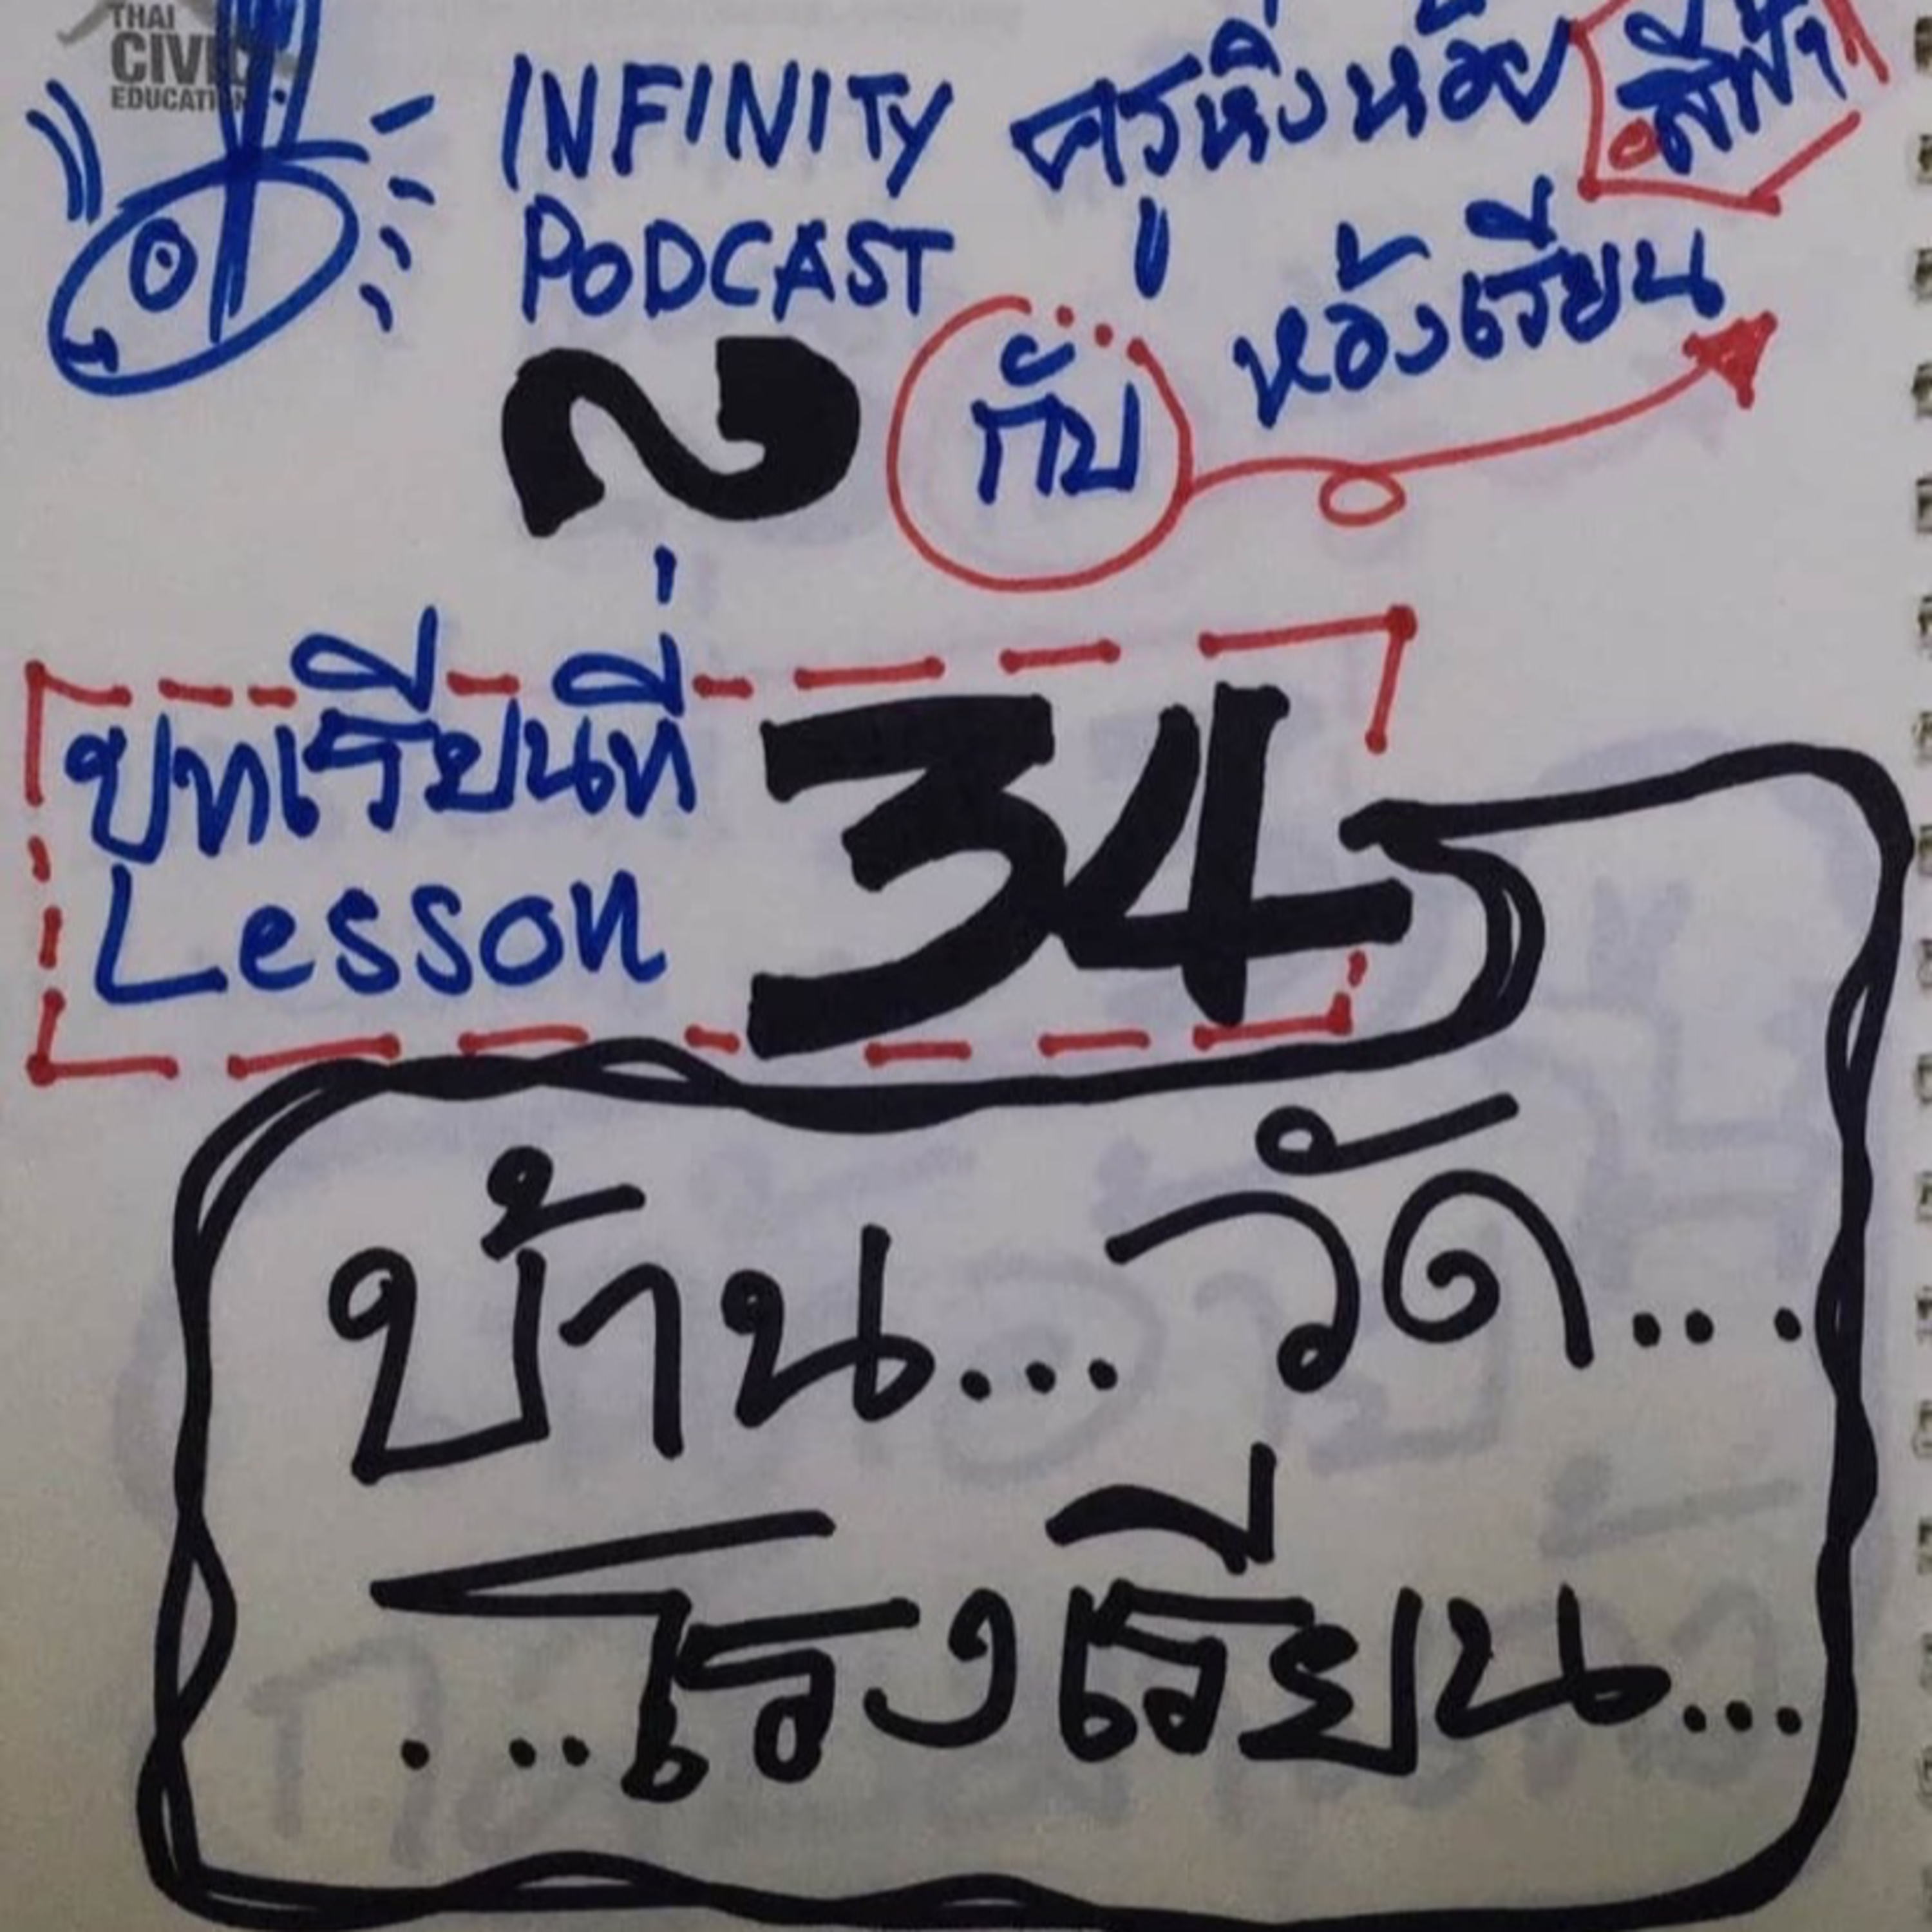 THAI
CIVIC
EDUCATION
INFINITY
PODCAST
ครูหิ่งห้อย
สีฟ้า
กับ
ห้องเรียน
บทเรียนที่ 34
Lesson
บ้าน... วัด...
...โรงเรียน...